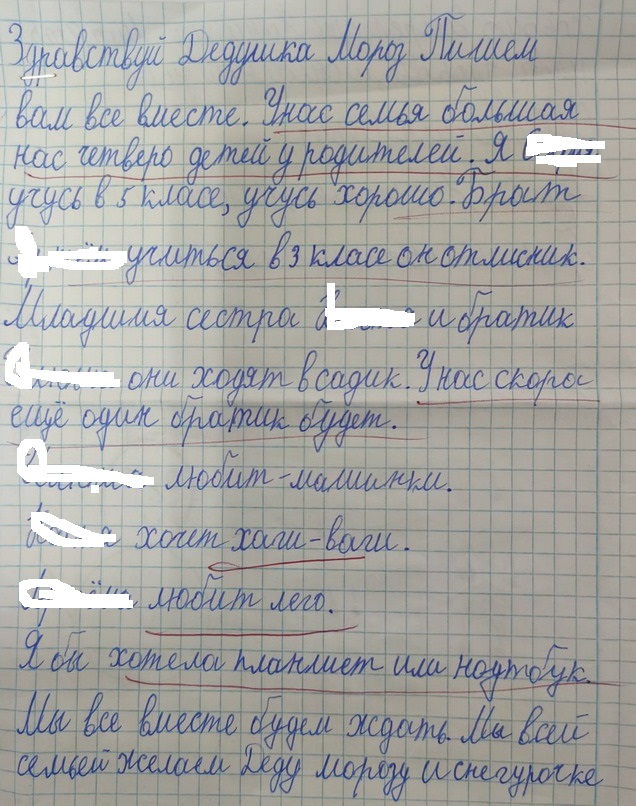 Здравствуй Дедушка Мороз Пишем
вам все вместе. Унас семья большая
нас четверо детей у родителей. Я
учусь в 5 класе, учусь хорошо. Брат
учиться в 3 класе он отлисник.
Младшия сестра и братик
они ходят в садик. Унас скоро
ещё один братик будет.
любит-машинки.
хочет хаги-ваги.
любит лего.
Я бы хотела планшет или ноутбук.
Мы все вместе будем ждать. Мы всей
семьей желаем Деду морозу и снегурочке